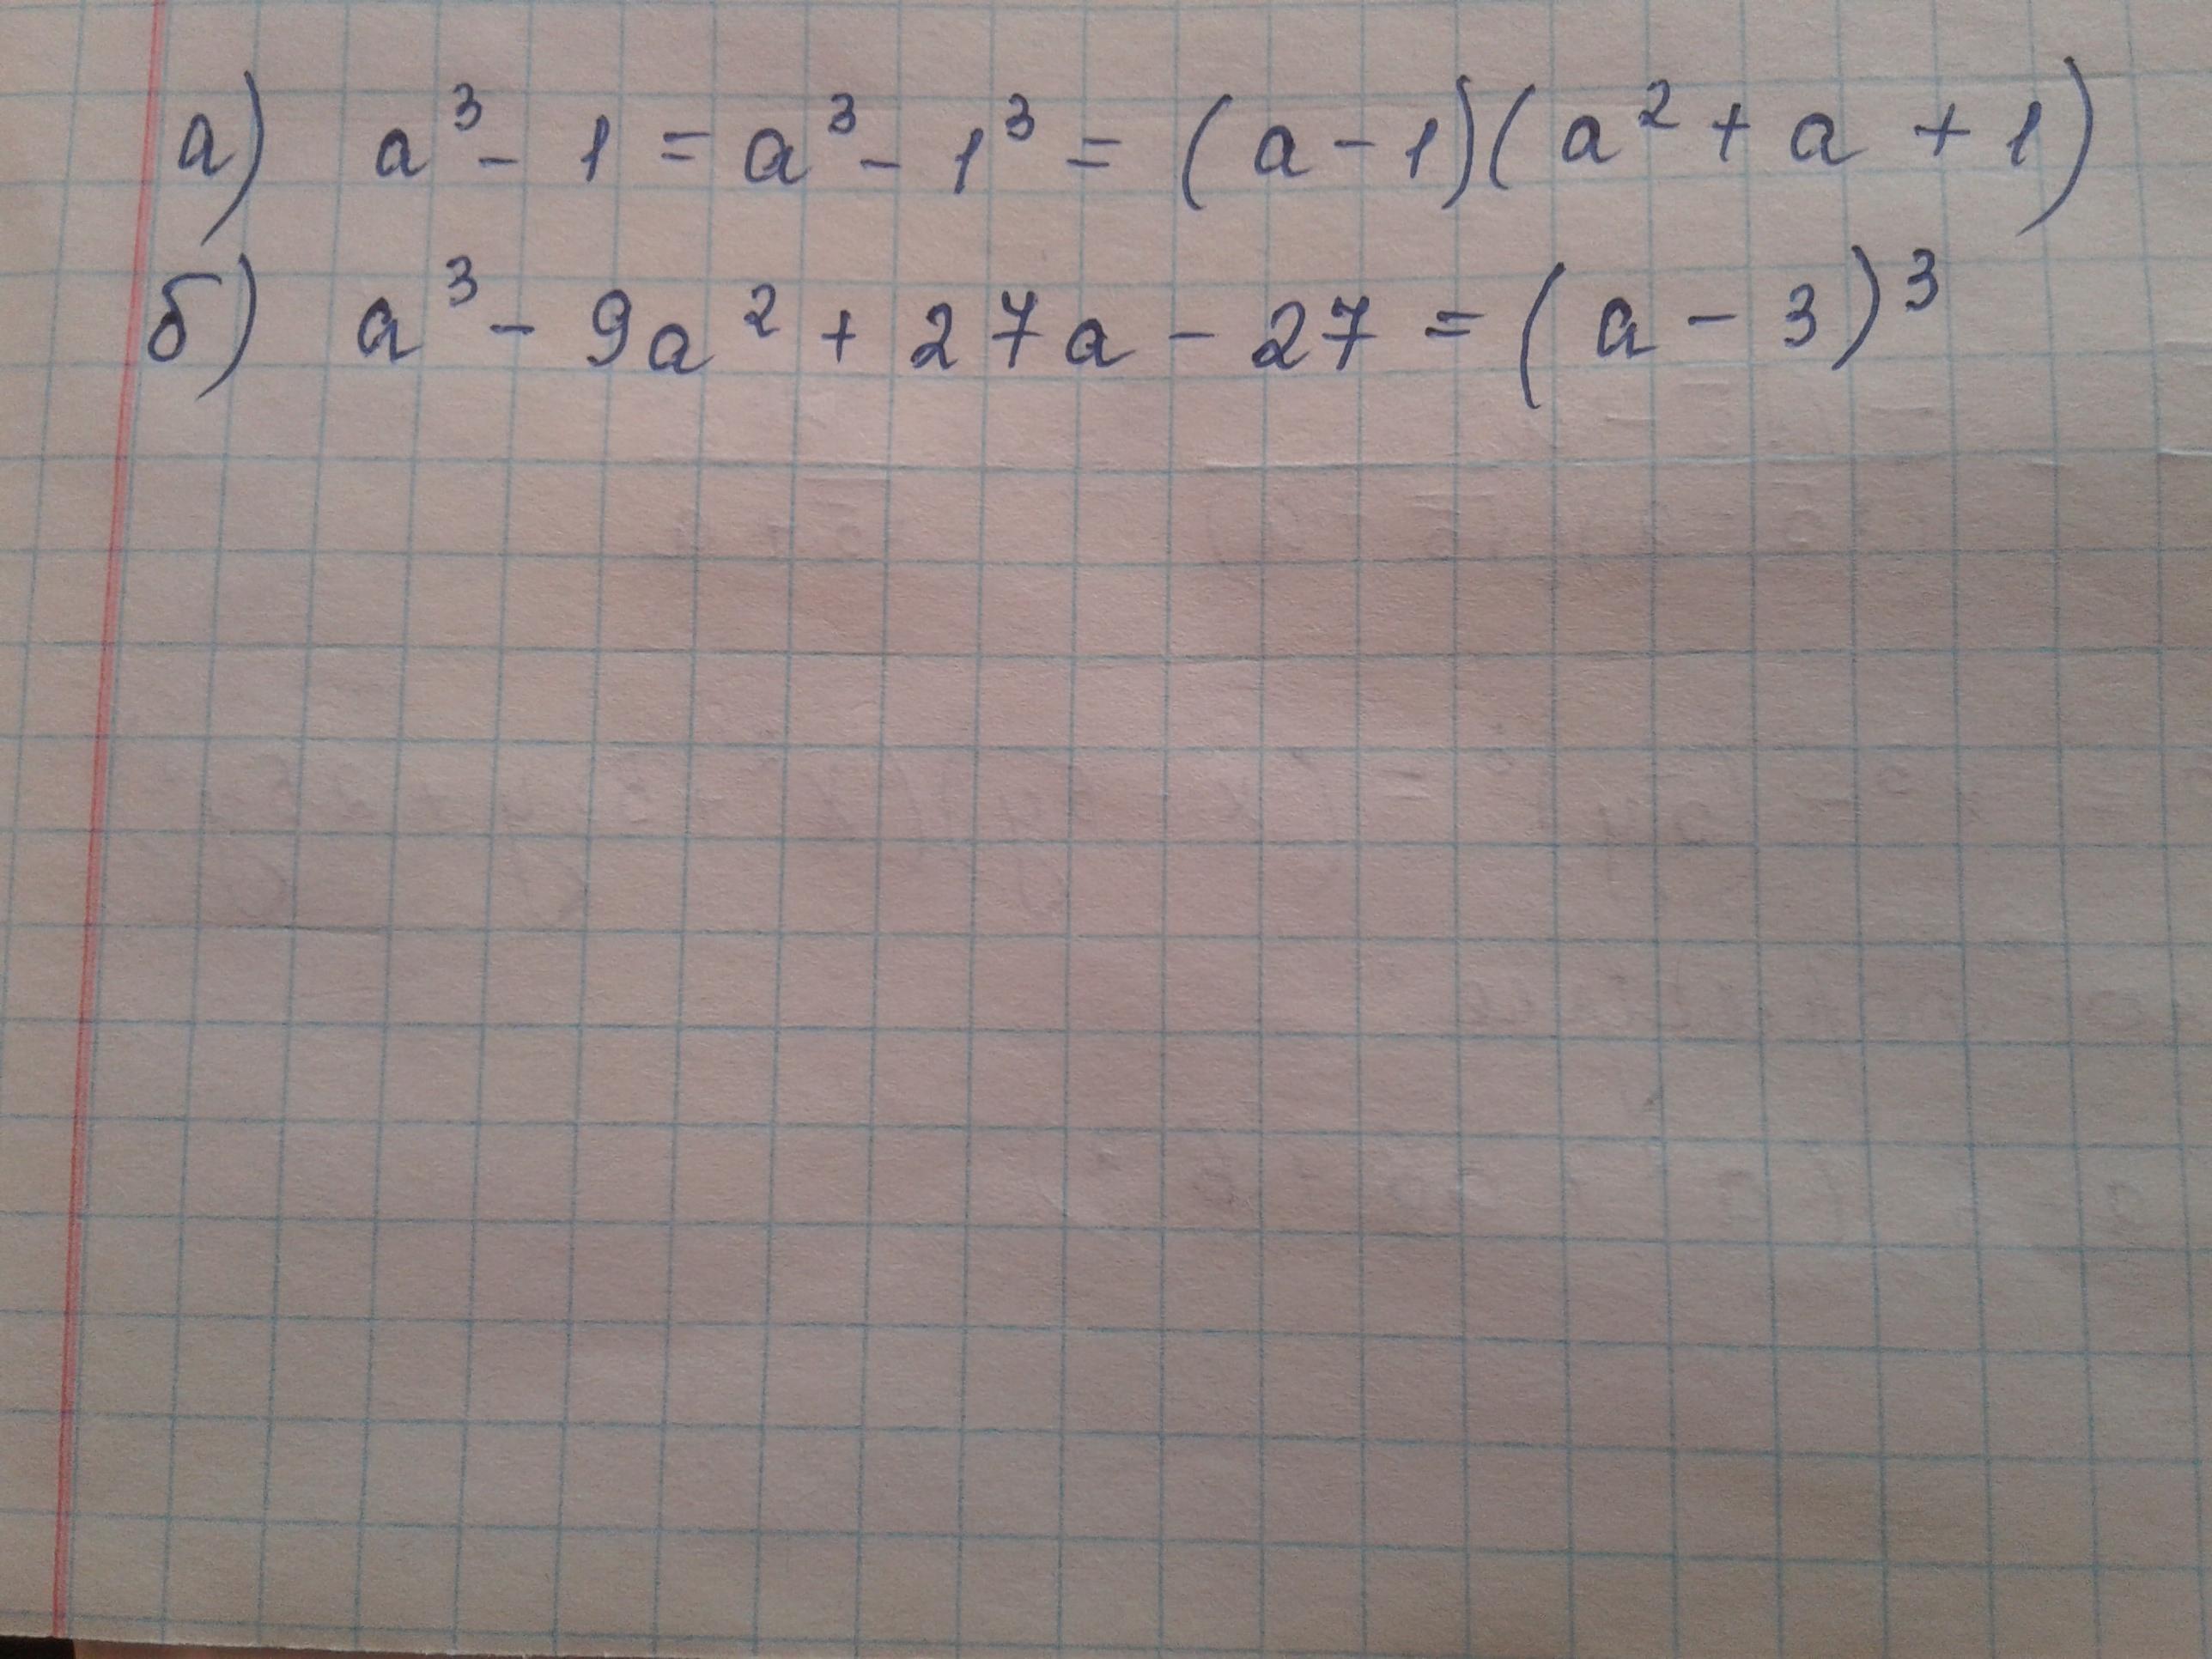 а) a³ - 1 = a³ - 1³ = (a - 1)(a² + a + 1)
б) a³ - 9a² + 27a - 27 = (a - 3)³